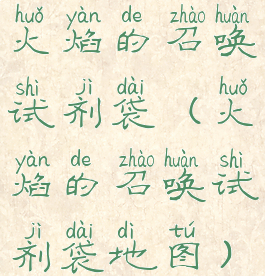 huǒ yàn de zhào huàn
火焰的召唤
shì jì dài huǒ
试剂袋（火
yàn de zhào huàn shì
焰的召唤试
jì dài dì tú
剂袋地图）